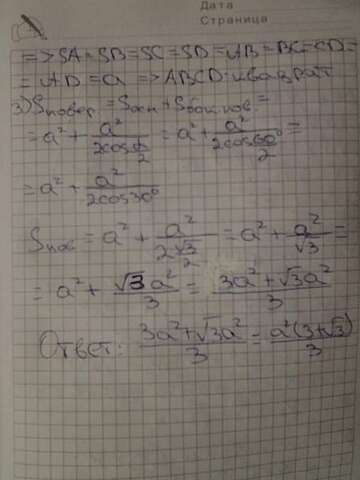 Дата
Страница
=> SA = SB = SC = SD = AB = BC = CD =
= AD = a => ABCD - квадрат
3) Sповер = Sосн + Sбок.пов =
= a² + a²/(2cos φ/2) = a² + a²/(2cos 60°/2) =
= a² + a²/(2cos30°)
Sпов = a² + a²/(2√3/2) = a² + a²/√3 =
= a² + √3a²/3 = (3a² + √3a²)/3
Ответ: (3a² + √3a²)/3 = a²(3+√3)/3